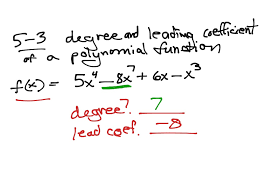 5-3 degree and leading coefficient
of a polynomial function
f(x) = 5x⁴ - 8x⁷ + 6x - x³
degree? 7
lead coef. -8